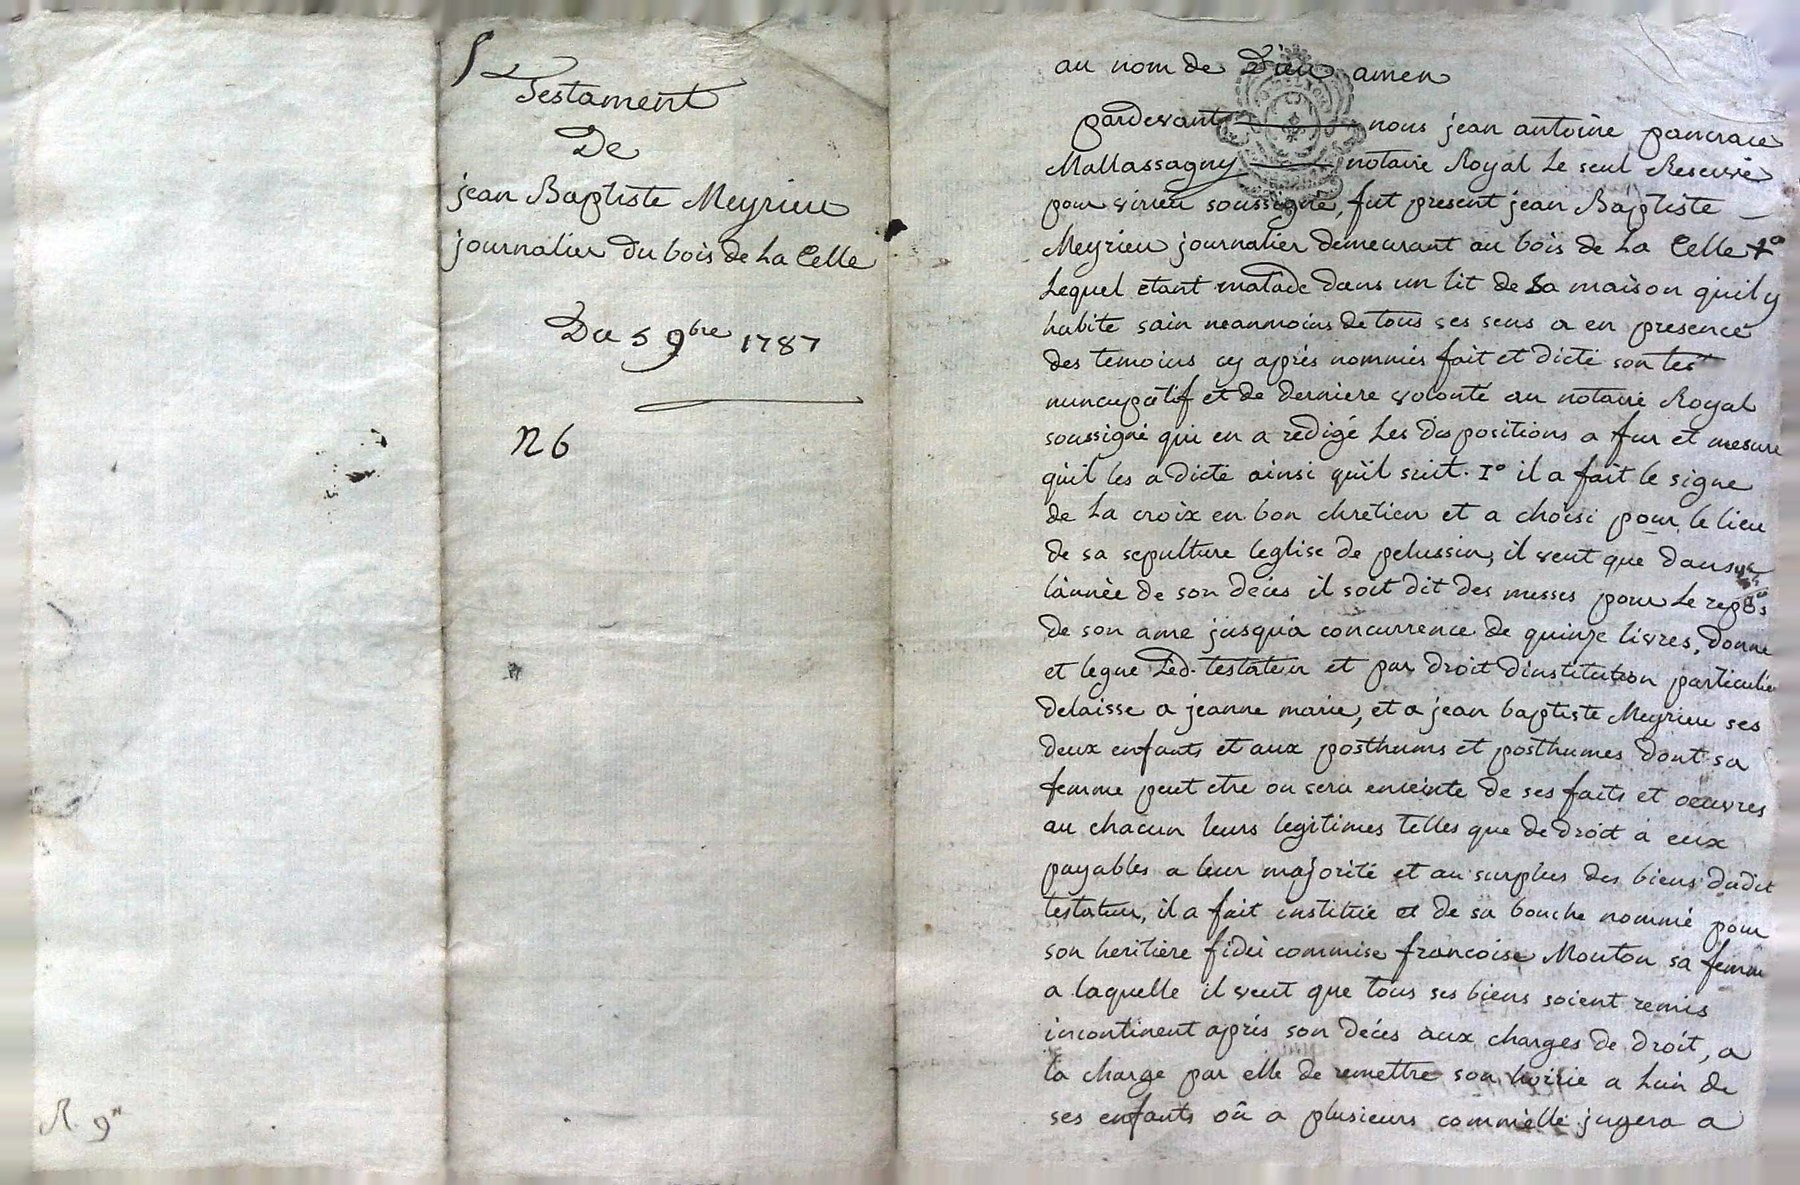 Testament
De
jean Baptiste Meyrieu
journalier du bois de La Celle
Du 5 9bre 1787
N 6
R. 9n
au nom de Dieu amen
pardevant nous jean antoine pancrace
Mallassagny notaire Royal Le seul Reservé
pour virieu soussigné, fut present jean Baptiste
Meyrieu journalier demeurant au bois de La Celle
Lequel etant malade dans un lit de Sa maison quil y
habite sain neanmoins de tous ses sens a en presence
des temoins cy aprés nommés fait et dicté son test
nuncupatif et de derniere volonté au notaire Royal
soussigné qui en a redigé Les dispositions a fur et mesure
quil les a dicté ainsi quil suit. 1° il a fait le signe
de La croix en bon chretien et a choisi pour le lieu
de sa sepulture leglise de pelussin, il veut que dans
lànnèe de son décés il soit dit des messes pour Le repos
de son ame jusqua concurrence de quinze livres, donne
et legue Led. testateur et par droit dinstitution particulier
delaisse a jeanne marie, et a jean baptiste Meyrieu ses
deux enfants et aux posthums et posthumes dont sa
femme peut etre ou sera enceinte de ses faits et oeuvres
au chacun leurs legitimes telles que de droit a eux
payables a leur majorité et au surplus des biens dudit
testateur, il a fait institué et de sa bouche nommé pour
son heritiere fidei commise francoise Mouton sa femme
a laquelle il veut que tous ses biens soient remis
incontinent aprés son décés aux charges de droit, a
la charge par elle de remettre son hoirie a Lun de
ses enfants oû a plusieurs comme elle jugera a